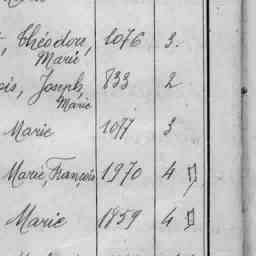 Théodore, 1076 3.
Marie
is, Joseph, 833 2
Marie
Marie 1077 3
Marie, François 1970 4
Marie 1859 4